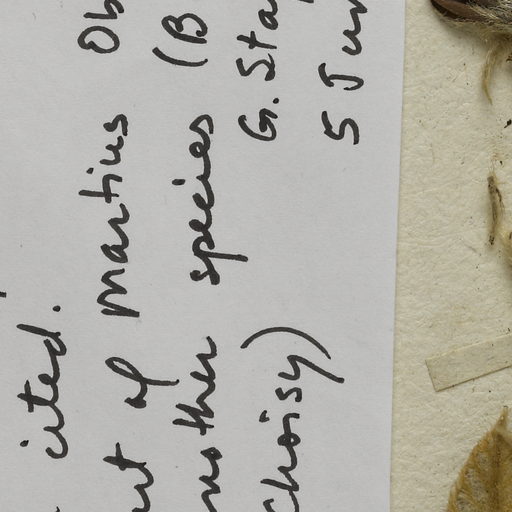 cited.
of Martius Ob
nother species (B
Choisy) G. Sta
5 Jun